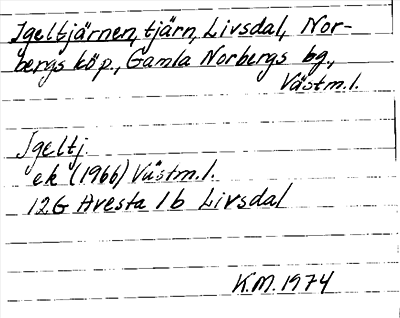 Igeltjärnen, tjärn, Livsdal, Nor-
bergs köp., Gamla Norbergs bg.,
Västm.l.
Igeltj.
ek (1966) Västm.l.
12G Avesta 1b Livsdal
K.M. 1974